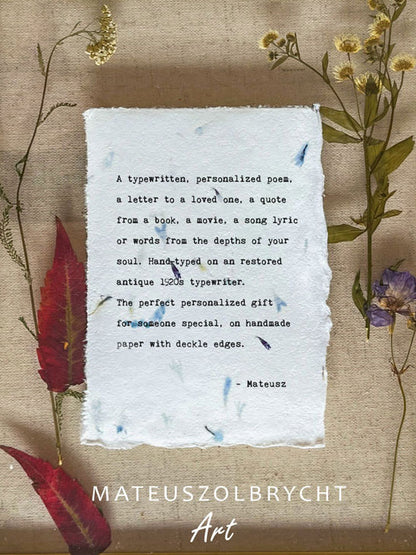 A typewritten, personalized poem,
a letter to a loved one, a quote
from a book, a movie, a song lyric
or words from the depths of your
soul. Hand-typed on an restored
antique 1920s typewriter.
The perfect personalized gift
for someone special, on handmade
paper with deckle edges.
- Mateusz
MATEUSZOLBRYCHT
Art